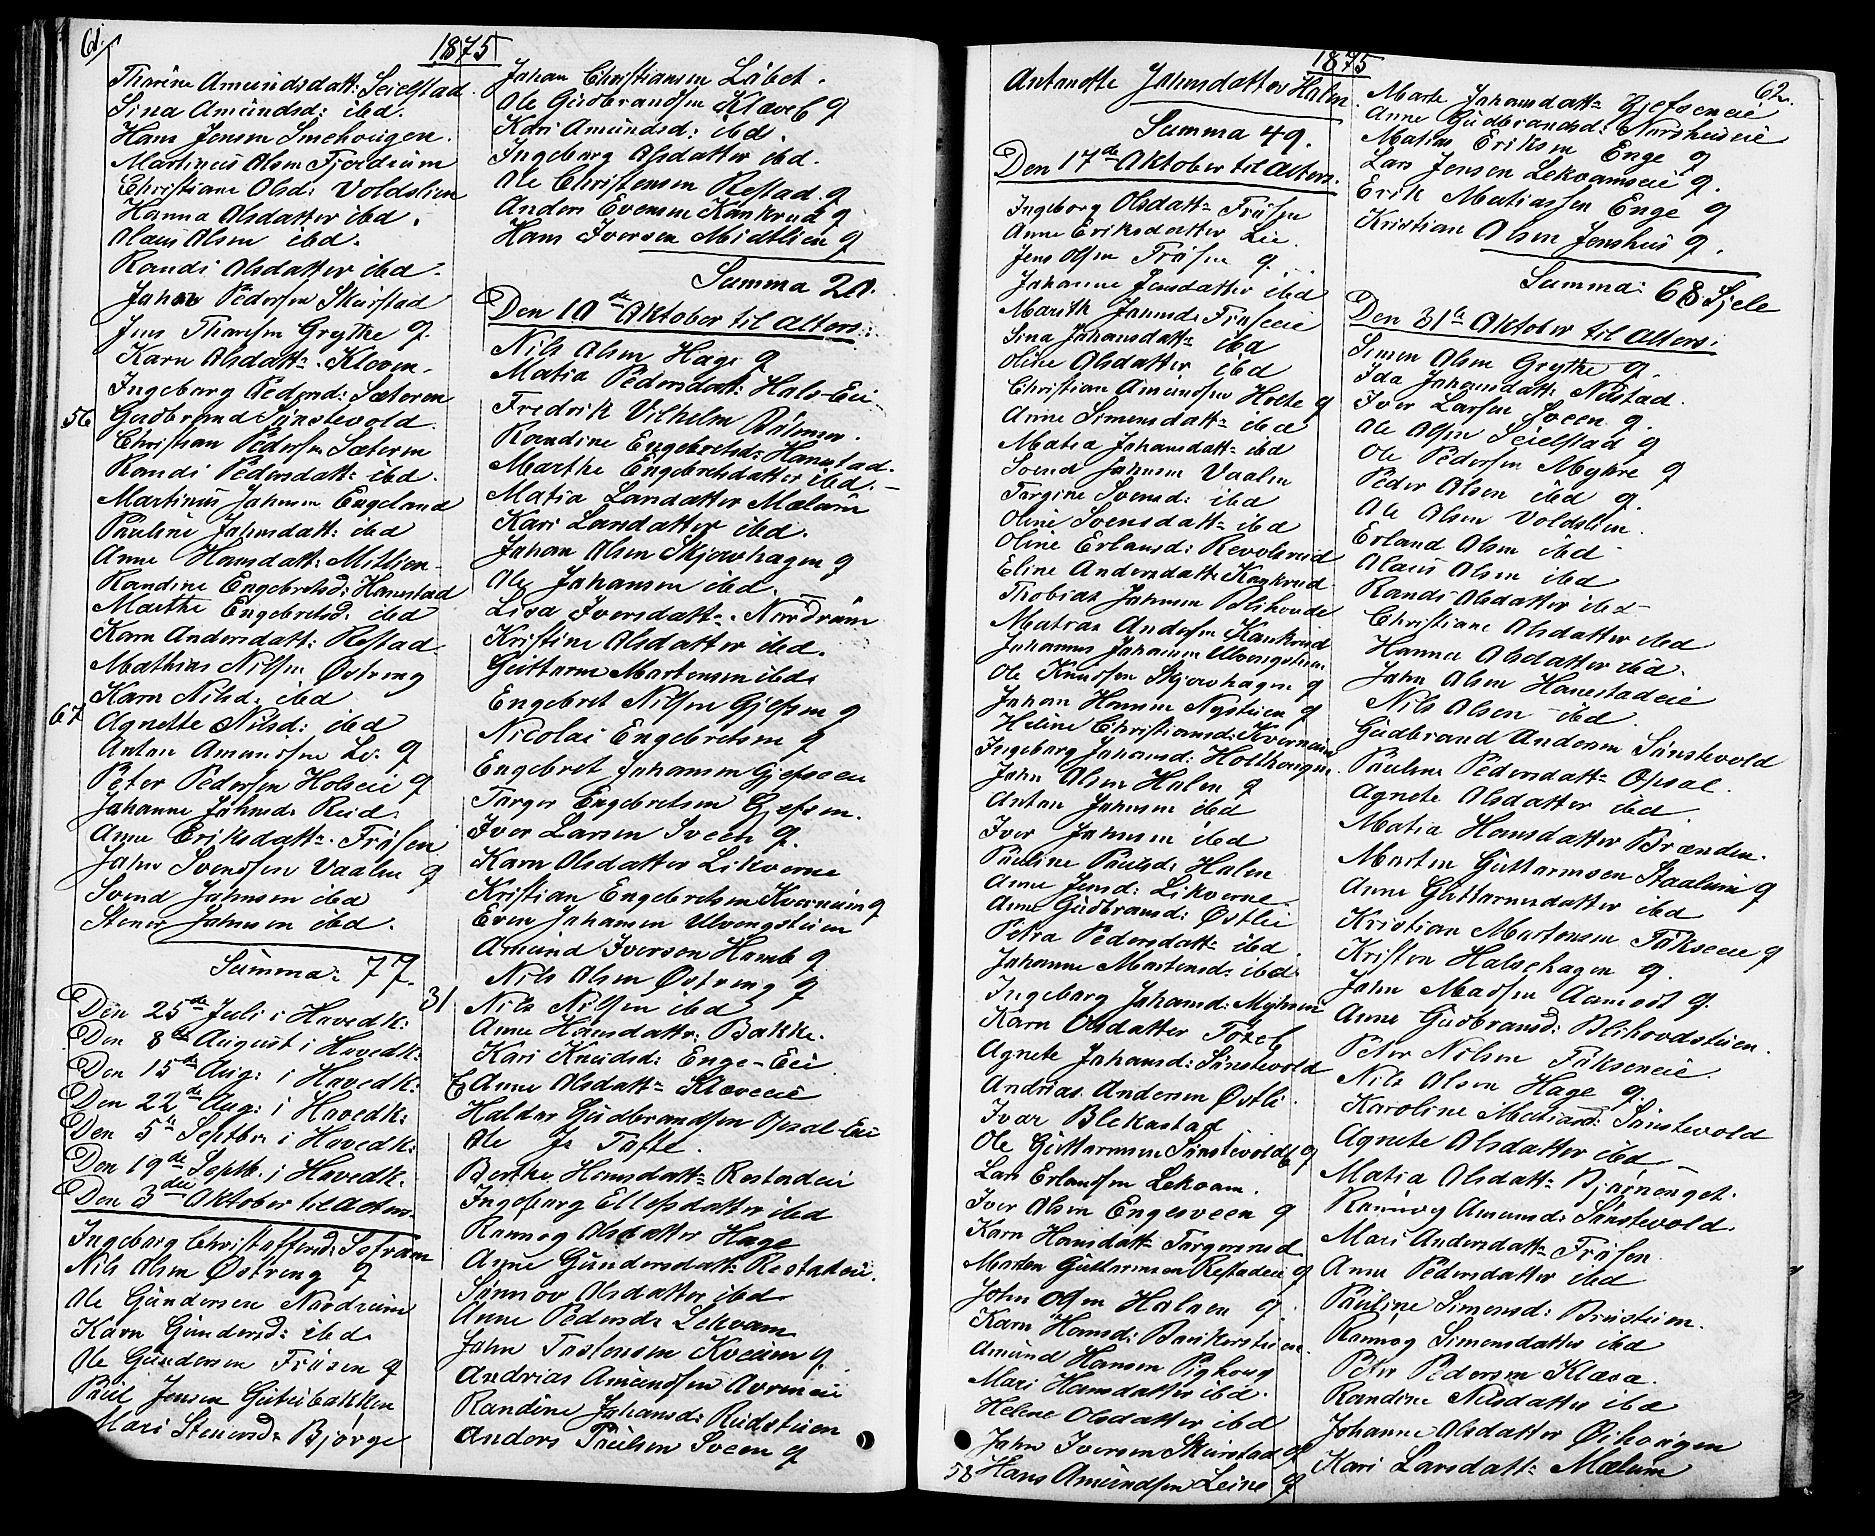 61.
1875
Tharine Amundsdatt: Seielstad
Sina Amundsd: ibd.
Hans Jensen Smehougen
Martinus Olsen Fjeldrum
Christiane Olsd: Voldslien
Hanna Olsdatter ibd.
Olaus Olsen ibd.
Randi Olsdatter ibd.
Johan Pedersen Skurstad
Jens Thoresen Grythe g.
Karn Olsdatt: Kloven
Ingeborg Pedersd: Sæteren
56 Gudbrand Sønstevold
Christian Pedersen Sæteren
Randi Pedersdatt: ibd.
Martinus Johnsen Engeland
Pauline Johnsdatt: ibd
Anne Hansdatt: Mitlien
Randine Engebretsd: Hanestad
Marthe Engebretsd. ibd
Karn Andersdatt: Restad
Mathias Nilsen Østreng
Karn Nilsd: ibd
67 Agnette Nilsd: ibd
Anton Amundsen Li: g
Peter Pedersen Holseie g
Johanne Johnsd: Reid.
Anne Eriksdatt: Frøsen
John Svendsen Vaalen g
Svend Johnsen ibd
Stener Johnsen ibd.
Summa: 77.
Den 25de Juli i Hovedk:
Den 8de August i Hovedk:
Den 15de Aug: i Hovedk:
Den 22de Aug: i Hovedk:
Den 5te Septbr i Hovedk:
Den 19de Septb. i Hovedk.
Den 3die Oktober til alters.
Ingeborg Christoffersd: Sefram
Nils Olsen Østreng g
Ole Gundersen Nordrum
Karn Gundersd: ibd
Ole Gundersen Frøsen g
Paul Jensen Guteibakken
Mari Stenersd: Bjørge
Johan Christiansen Løbet.
Ole Gudbrandsen Kloveb g
Kari Amundsd: ibd.
Ingeborg Olsdatter ibd.
Ole Christensen Restad. g
Anders Evensen Kankrud g
Hans Iversen Midtlien g
Summa 20.
Den 10de Oktober til alters:
Nils Olsen Hage g
Matia Pedersdat: Hals-Eie
Fredrik Vilhelm Bøhmer.
Randine Engebretsd: Hanestad.
Marthe Engebretsdatter ibd.
Matia Larsdatter Mælum
Kari Larsdatter ibd.
Johan Olsen Skjowhagen g
Ole Johansen ibd.
Lisa Iversdatt: Nordrum
Kristine Olsdatter ibd.
Guttorm Martensen ibd.
Engebret Nilsen Gjefsen g
Nicolai Engebretsen g
Engebret Johansen Gjefseeie
Torger Engebretsen Gjefsen.
Iver Larsen Sveen g.
Karn Olsdatter Likverne
Kristian Engebretsen Kverneien g
Even Johansen Ulvengstuen
Amund Iversen Hamb g.
Nils Olsen Østreng g
31 Nils Nilsen ibd
Anne Hansdatter: Bakke.
Kari Knudsd: Enge-Eie
Anne Olsdatt: Kloveeie
Haldor Gudbrandsen Opsal-Eie
Ole Js Tofte.
Berthe Hansdatt: Restadeie
Ingeborg Ellefsdatter ibd
Rannog Olsdatter Hage
Anne Gundersdatt: Restadeie.
Sønnov Olsdatter ibd.
Anne Pedersd: Lekvam
John Tostensen Kveum g.
Andrias Amundsen Avrneie
Randine Johansd: Rudstuen
Anders Paulsen Sveen g
1875
62.
Antonette Johnsdatter Halen
Summa 49.
Den 17de Oktober til alters.
Ingeborg Olsdatt: Frøsen
Anne Eriksdatter Lie.
Jens Olsen Frøsen g.
Johanne Jensdatter ibd
Marith Johnsd: Frøseeie
Sina Johansdatt: ibd
Oline Olsdatter ibd
Christian Amundsen Holte g
Anne Simensdatt: ibd
Matia Johansdatt: ibd
Svend Johnsen Vaalen
Torgine Svensd: ibd
Oline Svensdatt: ibd
Oline Erlandsd: Revolsrud
Eline Andersdatt: Kankrud
Thobias Johnsen Blihovde
Matias Andersen Kankrud
Johannes Johansen Ulvengstuen
Ole Knudsen Skjowhagen g
Johan Hansen Nystuen g
Heline Christiansd: Kverneien
Ingeborg Johansd: Holthougen
John Olsen Halen g
Anton Johnsen ibd
Iver Johnsen ibd
Pauline Paulsd: Halen
Anne Jensd: Likverne
Anne Gudbransd: Østlie
Petra Pedersdatt: ibd
Johanne Mortensd: ibd
Ingeborg Johansd: Myhren
Karn Olsdatter Tozeb
Agnete Johansd: Sønstevold
Andrias Andersen Østli.
Ivar Blekastad
Ole Guttormsen Sønstevoldb g
Lars Erlandsen Lekvam.
Iver Olsen Engesveen g
Karn Hansdatt: Torgersrud
Morten Guttormsen Restadeie g
John Olsen Halnen g.
Karn Hansd: Bankerstuen.
Amund Hansen Pighoug
Mari Hansdatter ibd.
Helene Olsdatter ibd
John Iversen Skurstad g
58 Hans Amundsen Leine g
Marte Johansdatt: Gjefseneie
Anne Gudbrandsd: Norshuseie
Matias Eriksen Enge g
Lars Jensen Lekvamseie g.
Erik Matiassen Enge g
Kristian Olsen Jenshus g.
Summa: 68 Sjele
Den 31te Oktober til alters:
Simen Olsen Grythe g.
Ida Johansdatt: Nustad.
Iver Larsen Sveen g.
Ole Olsen Seielstad g
Ole Pedersen Myhre g
Peder Olsen ibd g.
Ole Olsen Voldslien.
Erland Olsen ibd
Olaus Olsen ibd
Randi Olsdatter ibd
Christiane Olsdatter ibd
Hanna Olsdatter ibd.
John Olsen Hanestadeie
Nils Olsen ibd.
Gudbrand Andersen Sønstevold
Pauline Pedersdatt: Opsal.
Agnete Olsdatter ibd.
Matia Hansdatter Brænden.
Morten Guttormsen Staalum g
Anne Guttormsdatter ibd
Kristian Mortensen Tokseeie g
Kristen Halsehagen g.
John Madsen Aamodt g.
Anne Gudbransd: Blihovdstuen.
Peter Nilsen Tokseneie
Nils Olsen Hage g.
Karoline Matiasd: Sønstevold
Agnete Olsdatter ibd
Matia Olsdatt: Bjørnenget.
Rannog Amunsd: Sønstevold.
Mari Andersdatt: Frøsen.
Anne Pedersdatter ibd
Pauline Simensd: Brustuen.
Rannog Simensdatter ibd
Peter Pedersen Klæva.
Randine Nilsdatter ibd
Johanne Olsdatter Øihougen
Kari Larsdatt: Mælum